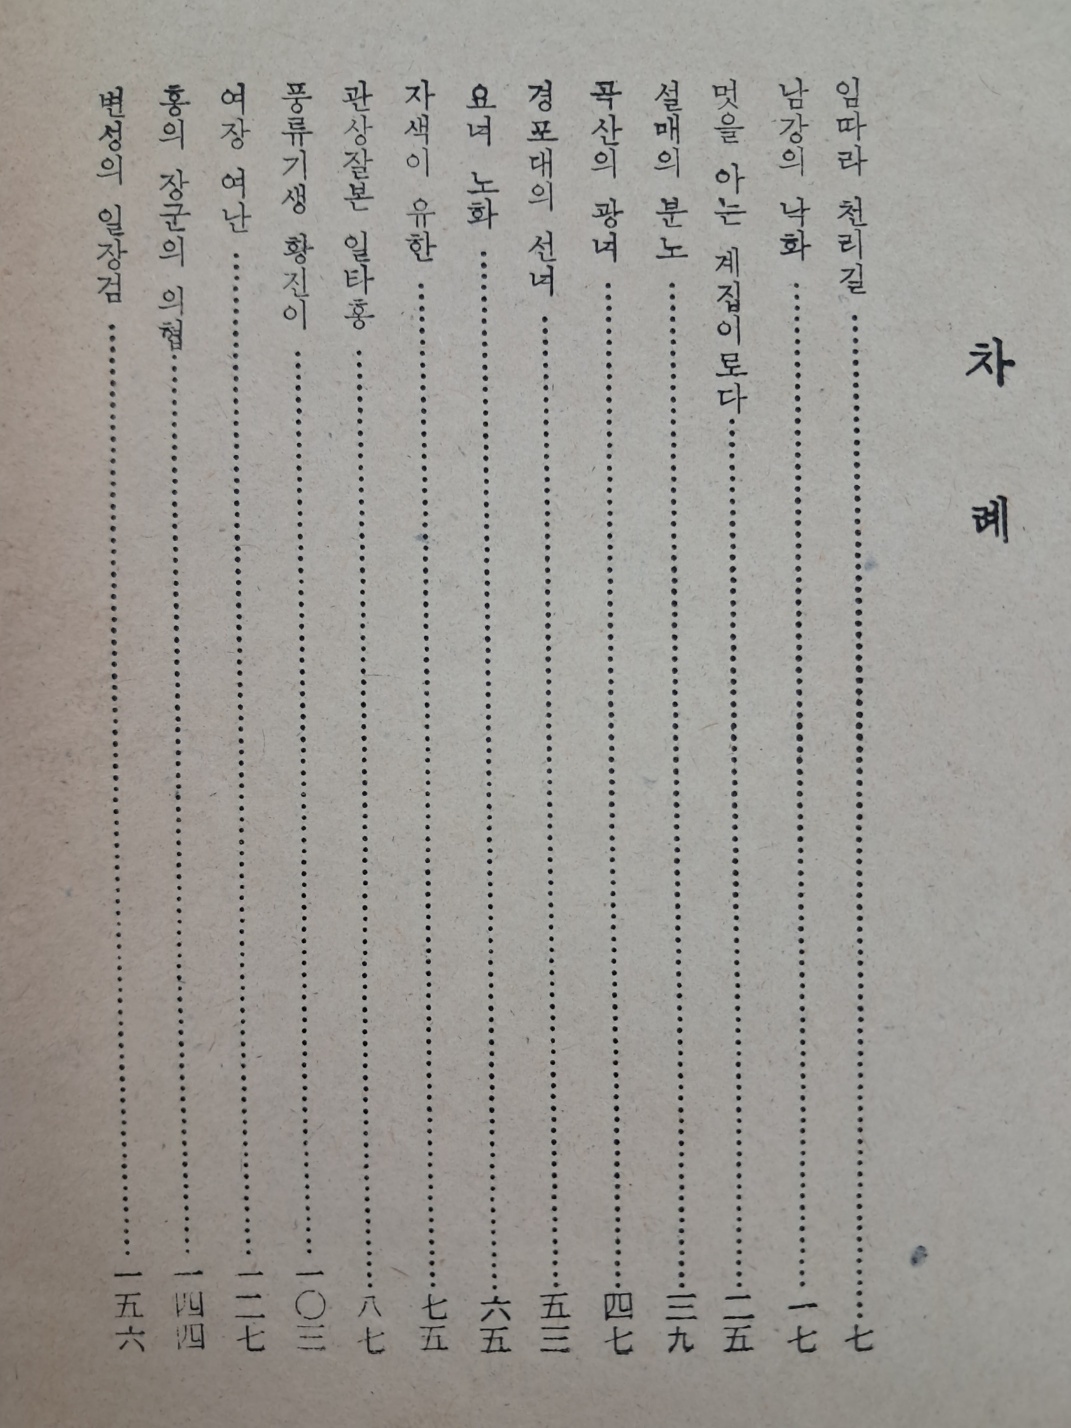 차 례
임따라 천리길……七
남강의 낙화……一七
멋을 아는 계집이로다……二五
설매의 분노……三九
곡산의 광녀……四七
경포대의 선녀……五三
요녀 노화……六五
자색이 유한……七五
관상잘본 일타홍……八七
풍류기생 황진이……一〇三
여장 여난……一二七
홍의 장군의 의협……一四四
변성의 일장검……一五六